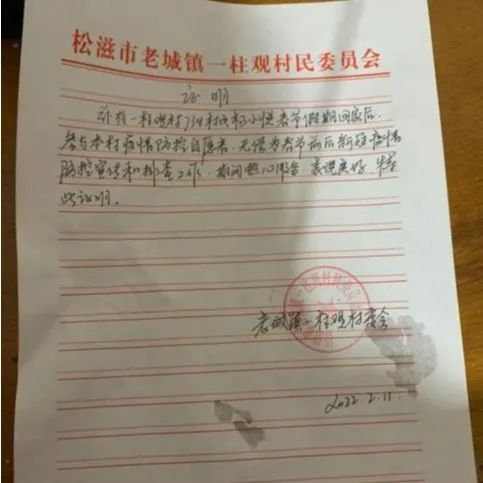 松滋市老城镇一柱观村民委员会
证明
兹有一柱观村了组村民 小 春节假期回家后,
参与本村疫情防控自愿者,无偿为春节前后新冠疫情
防控宣传和排查工作,期间热心 表现良好,特
此证明。
老城镇一柱观村委会
2022.2.11.